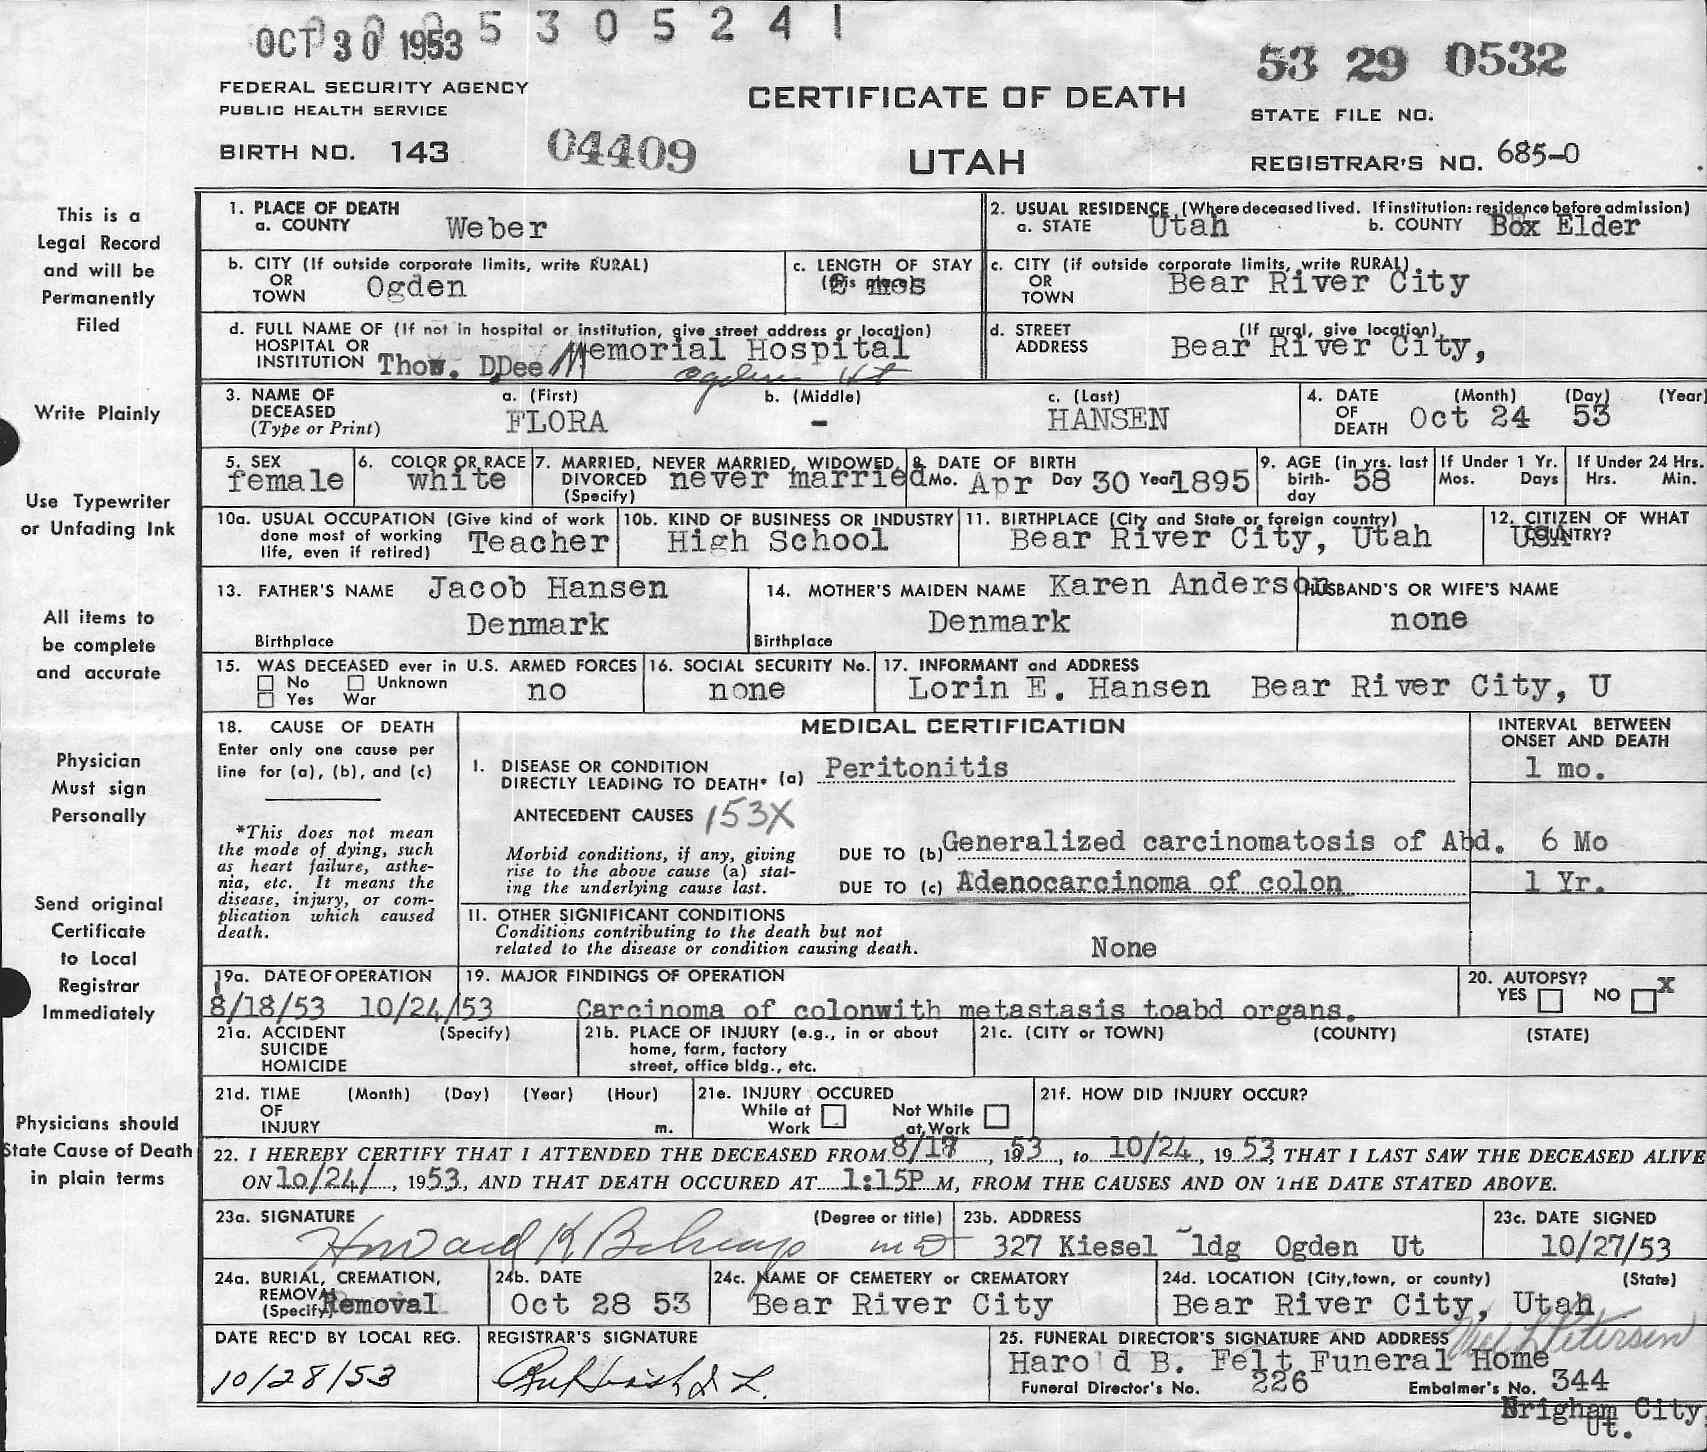 OCT 30 1953 5305241
53 29 0532
FEDERAL SECURITY AGENCY
PUBLIC HEALTH SERVICE
CERTIFICATE OF DEATH
STATE FILE NO.
BIRTH NO. 143 04409
UTAH
REGISTRAR'S NO. 685-0
This is a
Legal Record
and will be
Permanently
Filed
1. PLACE OF DEATH
a. COUNTY Weber
2. USUAL RESIDENCE (Where deceased lived. If institution: residence before admission)
a. STATE Utah b. COUNTY Box Elder
b. CITY (If outside corporate limits, write RURAL)
OR
TOWN Ogden
c. LENGTH OF STAY
(in this place) mos
c. CITY (if outside corporate limits, write RURAL)
OR
TOWN Bear River City
d. FULL NAME OF (If not in hospital or institution, give street address or location)
HOSPITAL OR
INSTITUTION Thow. DDee Memorial Hospital
Ogden Ut
d. STREET (If rural, give location)
ADDRESS Bear River City,
Write Plainly
3. NAME OF
DECEASED
(Type or Print)
a. (First) b. (Middle) c. (Last)
FLORA - HANSEN
4. DATE (Month) (Day) (Year)
OF
DEATH Oct 24 53
Use Typewriter
or Unfading Ink
5. SEX
female
6. COLOR OR RACE
white
7. MARRIED, NEVER MARRIED, WIDOWED,
DIVORCED never married
(Specify)
8. DATE OF BIRTH
Mo. Apr Day 30 Year 1895
9. AGE (in yrs. last
birth-
day 58
If Under 1 Yr.
Mos. Days
If Under 24 Hrs.
Hrs. Min.
10a. USUAL OCCUPATION (Give kind of work
done most of working
life, even if retired) Teacher
10b. KIND OF BUSINESS OR INDUSTRY
High School
11. BIRTHPLACE (City and State or foreign country)
Bear River City, Utah
12. CITIZEN OF WHAT
COUNTRY?
USA
All items to
be complete
and accurate
13. FATHER'S NAME Jacob Hansen
Birthplace Denmark
14. MOTHER'S MAIDEN NAME Karen Anderson
Birthplace Denmark
HUSBAND'S OR WIFE'S NAME
none
15. WAS DECEASED ever in U.S. ARMED FORCES
No Unknown
Yes War no
16. SOCIAL SECURITY No.
none
17. INFORMANT and ADDRESS
Lorin E. Hansen Bear River City, U
Physician
Must sign
Personally
18. CAUSE OF DEATH
Enter only one cause per
line for (a), (b), and (c)
*This does not mean
the mode of dying, such
as heart failure, asthe-
nia, etc. It means the
disease, injury, or com-
plication which caused
death.
MEDICAL CERTIFICATION
INTERVAL BETWEEN
ONSET AND DEATH
I. DISEASE OR CONDITION
DIRECTLY LEADING TO DEATH* (a) Peritonitis 1 mo.
ANTECEDENT CAUSES 153X
Morbid conditions, if any, giving
rise to the above cause (a) stat-
ing the underlying cause last.
DUE TO (b) Generalized carcinomatosis of Abd. 6 Mo
DUE TO (c) Adenocarcinoma of colon 1 Yr.
Send original
Certificate
to Local
Registrar
Immediately
II. OTHER SIGNIFICANT CONDITIONS
Conditions contributing to the death but not
related to the disease or condition causing death. None
19a. DATE OF OPERATION
8/18/53 10/24/53
19. MAJOR FINDINGS OF OPERATION
Carcinoma of colonwith metastasis toabd organs.
20. AUTOPSY?
YES NO X
21a. ACCIDENT (Specify)
SUICIDE
HOMICIDE
21b. PLACE OF INJURY (e.g., in or about
home, farm, factory
street, office bldg., etc.
21c. (CITY or TOWN) (COUNTY) (STATE)
Physicians should
State Cause of Death
in plain terms
21d. TIME (Month) (Day) (Year) (Hour)
OF
INJURY m.
21e. INJURY OCCURED
While at Work Not While at Work
21f. HOW DID INJURY OCCUR?
22. I HEREBY CERTIFY THAT I ATTENDED THE DECEASED FROM 8/18, 1953, to 10/24, 1953, THAT I LAST SAW THE DECEASED ALIVE
ON 10/24/, 1953, AND THAT DEATH OCCURED AT 1:15P M, FROM THE CAUSES AND ON THE DATE STATED ABOVE.
23a. SIGNATURE (Degree or title)
Howard K Belnap MD
23b. ADDRESS
327 Kiesel ldg Ogden Ut
23c. DATE SIGNED
10/27/53
24a. BURIAL, CREMATION,
REMOVAL
(Specify) Removal
24b. DATE
Oct 28 53
24c. NAME OF CEMETERY or CREMATORY
Bear River City
24d. LOCATION (City, town, or county) (State)
Bear River City, Utah
DATE REC'D BY LOCAL REG.
10/28/53
REGISTRAR'S SIGNATURE
25. FUNERAL DIRECTOR'S SIGNATURE AND ADDRESS
Petersen
Harold B. Felt Funeral Home
Funeral Director's No. 226 Embalmer's No. 344
Brigham City,
Ut.